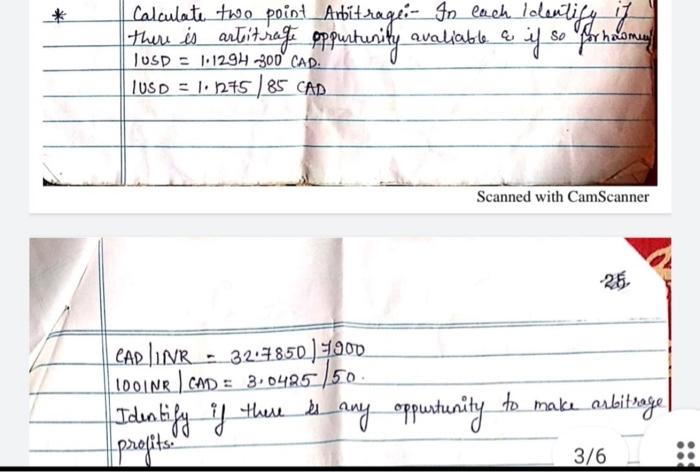 * Calculate two point Arbitrage:- In each Identify if
there is arbitrage oppurtunity avaliable & if so for how
1USD = 1.1294-300 CAD.
1USD = 1.1275/85 CAD
Scanned with CamScanner
25.
CAD|INR = 32.7850|7900
100INR|CAD = 3.0425/50.
Identify if there is any oppurtunity to make arbitrage
profits.
3/6